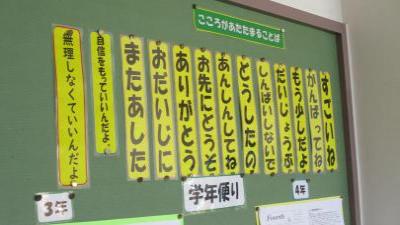 こころがあたたまることば
すごいね
がんばってね
もう少しだよ
だいじょうぶ
しんぱいしないで
どうしたの
あんしんしてね
お先にどうぞ
ありがとう
おだいじに
またあした
自信をもっていいんだよ。
無理しなくていいんだよ
3年
学年便り
4年
Fourth